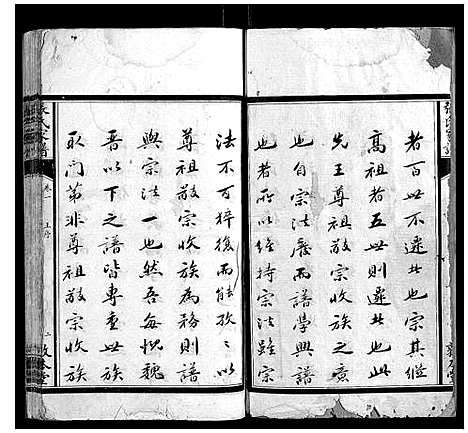 者百世不遷者也宗其繼
高祖者五世則遷者也
先王尊祖敬宗收族之意
也自宗法廢而譜學興譜
也者所以維持宗法雖宗
法不可猝復而能孜孜以
尊祖敬宗收族為務則譜
與宗法一也然吾每慨魏
晉以下之譜皆專查世族
取門第非尊祖敬宗收族
氏譜 卷一 二 敦本堂